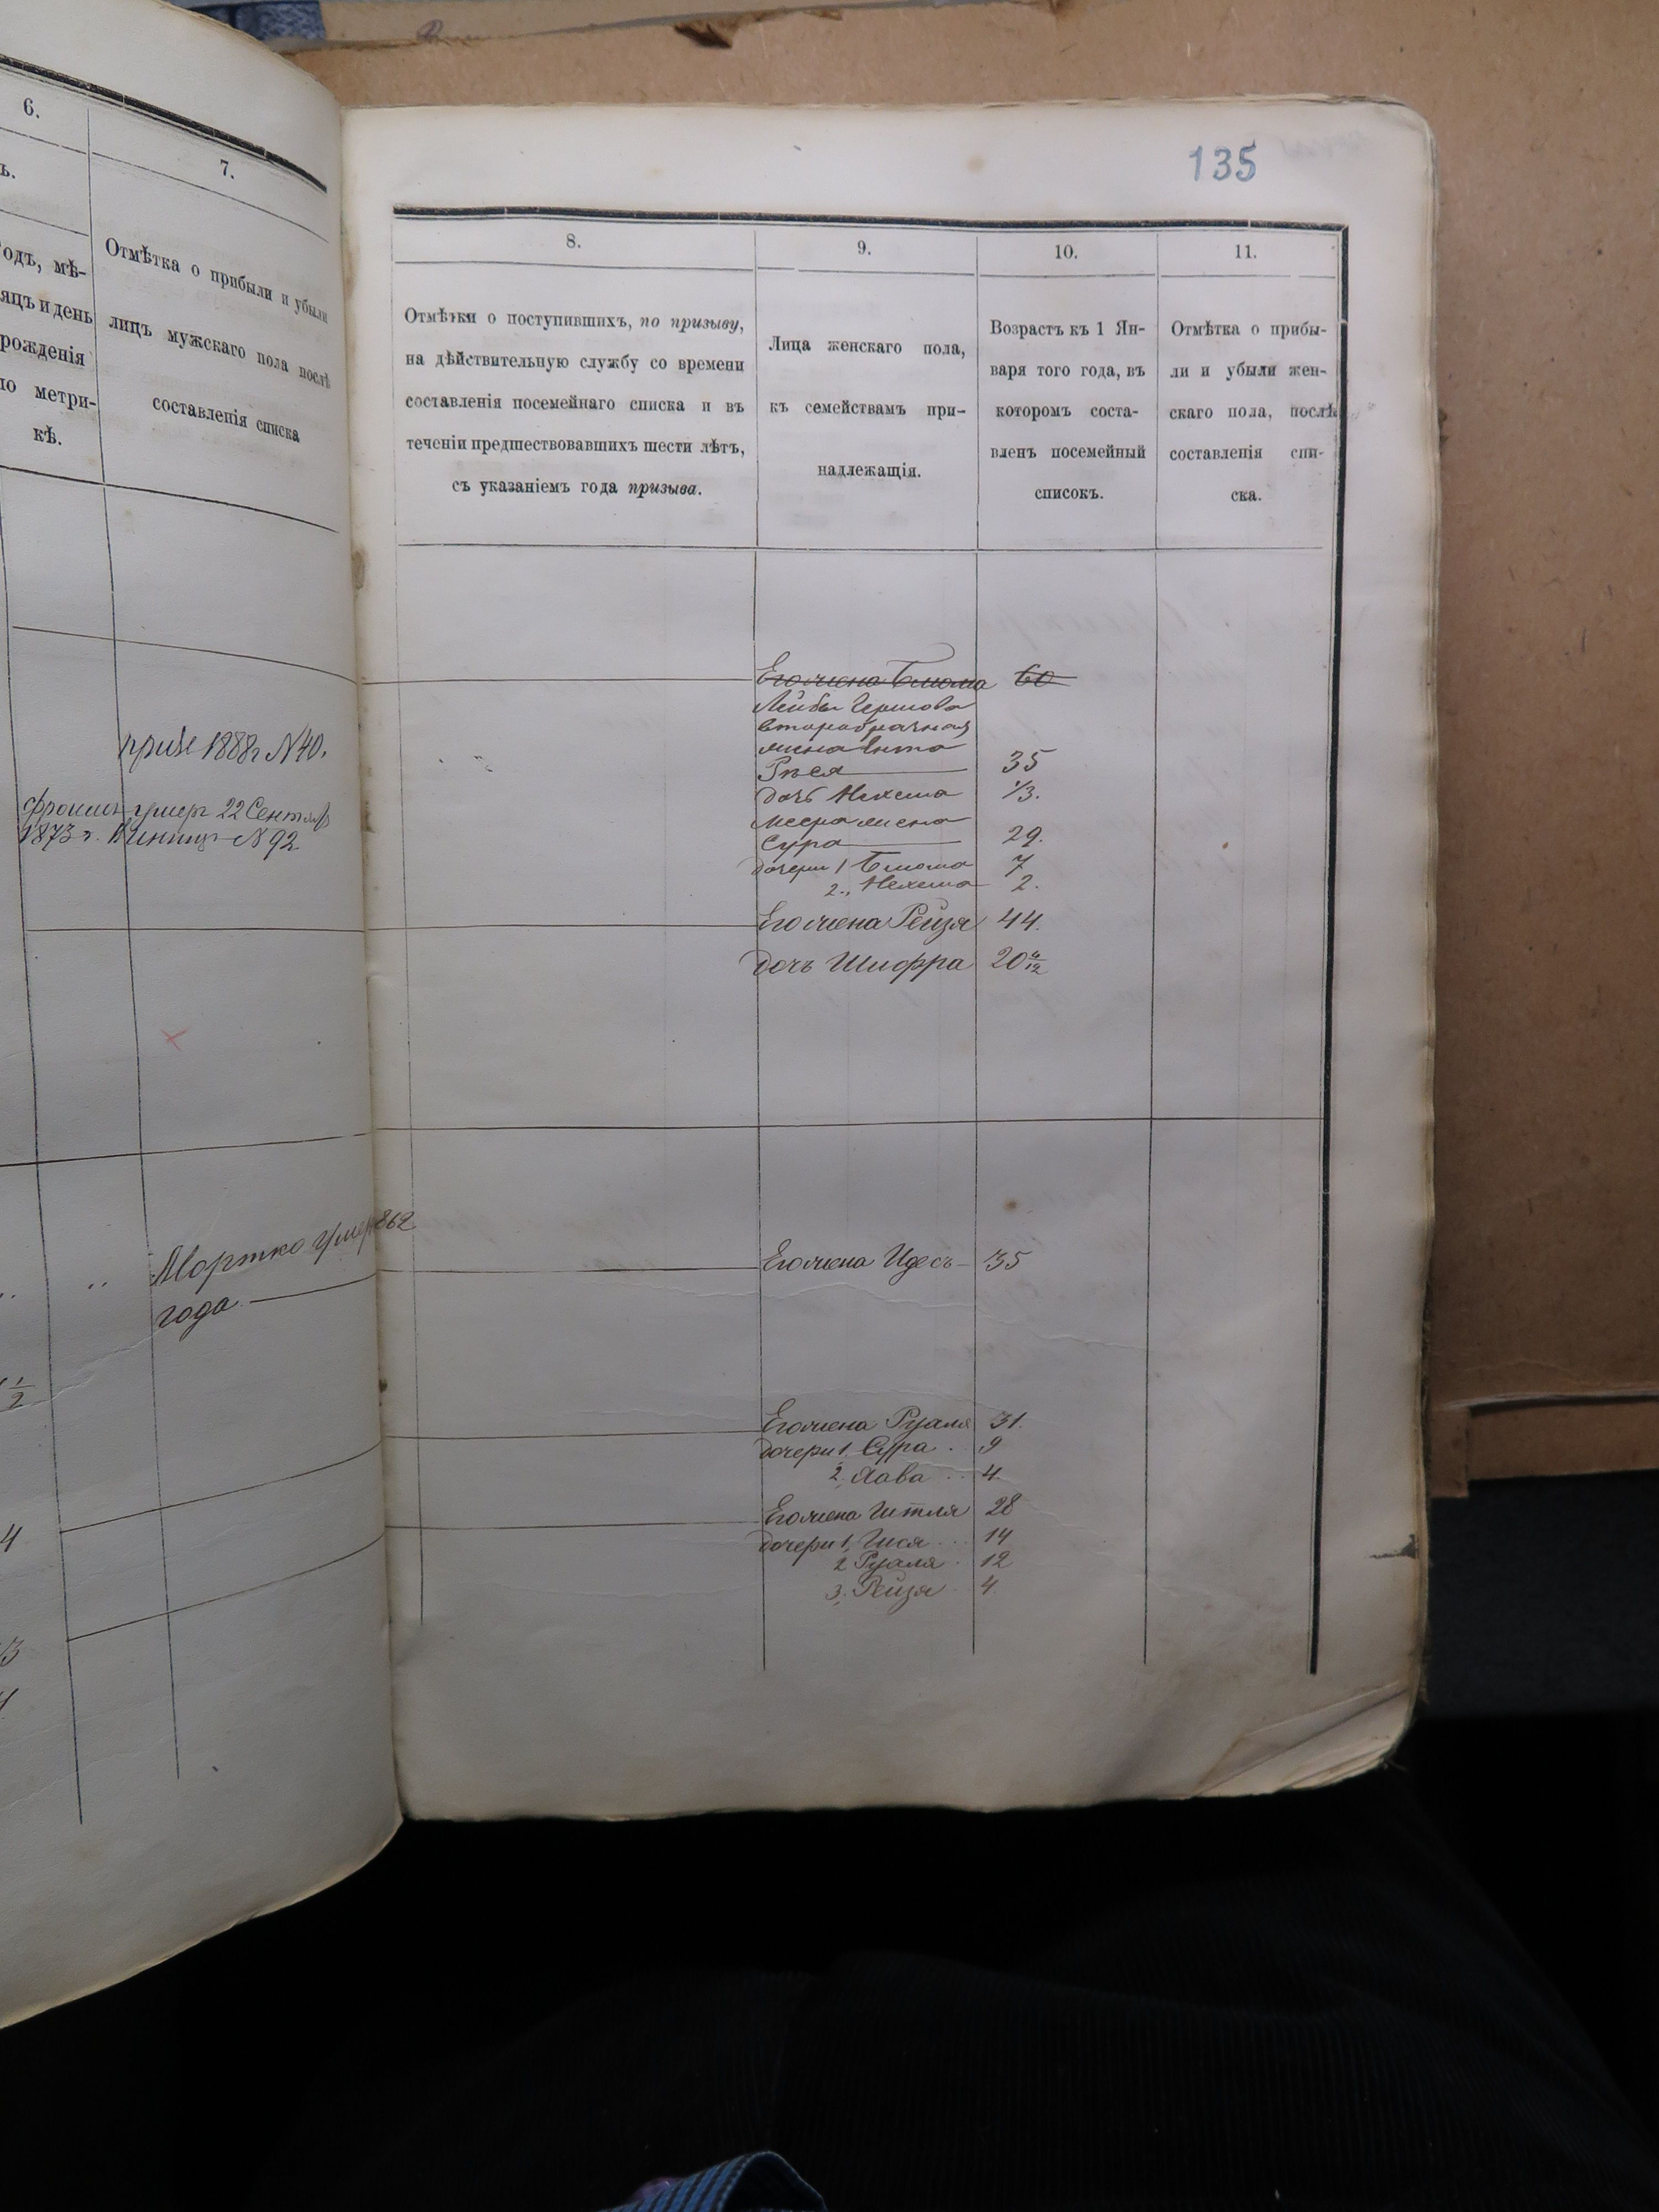 6.
7.
ъ.
одъ, мѣ-
яцъ и день
рожденія
по метри-
кѣ.
Отмѣтка о прибыли и убыли
лицъ мужскаго пола послѣ
составленія списка
1888г N40.
умер 22 Сентяб
1873 г. N 92
Мортко умер 862
года
1/2
4
3
4
135
8.
9.
10.
11.
Отмѣтки о поступившихъ, по призыву,
на дѣйствительную службу со времени
составленія посемейнаго списка и въ
теченіи предшествовавшихъ шести лѣтъ,
съ указаніемъ года призыва.
Лица женскаго пола,
къ семействамъ при-
надлежащія.
Возрастъ къ 1 Ян-
варя того года, въ
которомъ соста-
вленъ посемейный
списокъ.
Отмѣтка о прибы-
ли и убыли жен-
скаго пола, послѣ
составленія спи-
ска.
Его жена Блюма 60
Лейбы Гершова
второбрачная
жена Ента
Рися 35
дочь Нехема 1/3.
жена
Сура 29.
дочери 1 Блюма 7
2., Нехема 2.
Его жена Рейзя 44.
дочь Шифра 20 4/12
Его жена Идесъ 35
Его жена Рузля 31.
дочери 1, Сура . 9
2, Хава .. 4.
Его жена Гитля 28
дочери 1, Гися ... 14
2 Рузля . 12
3, Рейзя . 4.